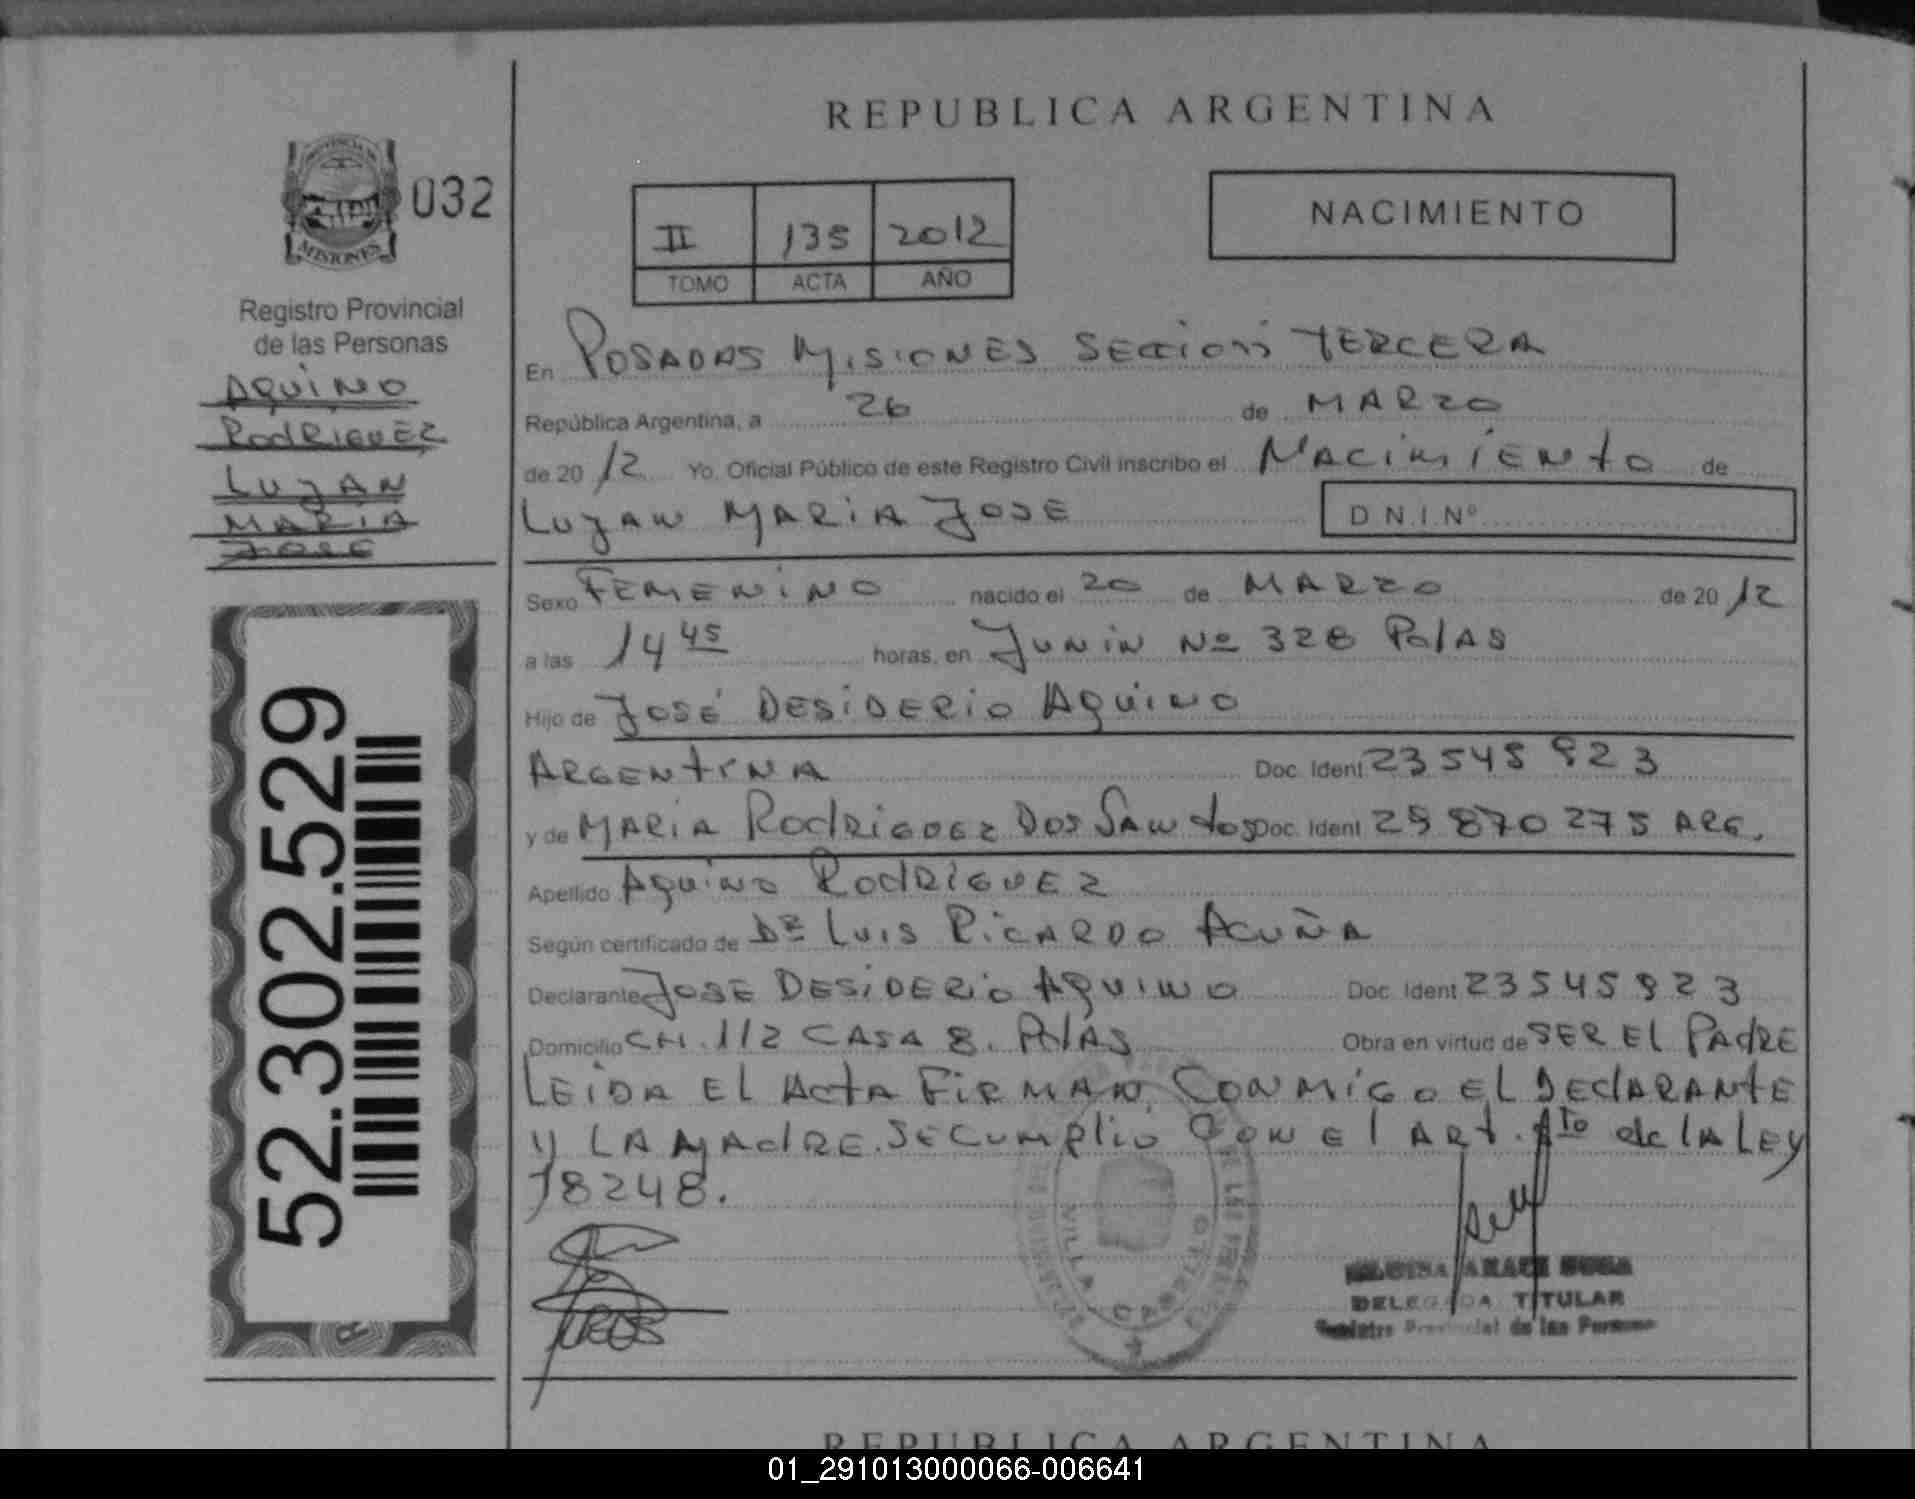 REPUBLICA ARGENTINA
PROVINCIA DE
MISIONES
032
Registro Provincial
de las Personas
AQUINO
RODRIGUEZ
LUJAN
MARIA
JOSE
52.302.529
II 135 2012
TOMO ACTA AÑO
NACIMIENTO
En POSADAS MISIONES SECCION TERCERA
República Argentina, a 26 de MARZO
de 20 12 Yo, Oficial Público de este Registro Civil inscribo el NACIMIENTO de
LUJAN MARIA JOSE D.N.I.Nº
Sexo FEMENINO nacido el 20 de MARZO de 20 12
a las 14 45 horas, en JUNIN Nº 328 Pdas
Hijo de JOSÉ DESIDERIO AQUINO
ARGENTINA Doc. Ident 23545923
y de MARIA RODRIGUEZ DOS SANTOS Doc. Ident 29870275 ARG.
Apellido AQUINO RODRIGUEZ
Según certificado de Dr LUIS RICARDO ACUÑA
Declarante JOSE DESIDERIO AQUINO Doc. Ident 23545923
Domicilio CH. 112 CASA 8. Pdas Obra en virtud de SER EL PADRE
LEIDA EL ACTA FIRMAN CONMIGO EL DECLARANTE
Y LA MADRE. SE CUMPLIO CON EL ART. de la LEY
18248.
VILLA CABELLO
DELEGADA TITULAR
Registro Provincial de las Personas
REPUBLICA ARGENTINA
01_291013000066-006641